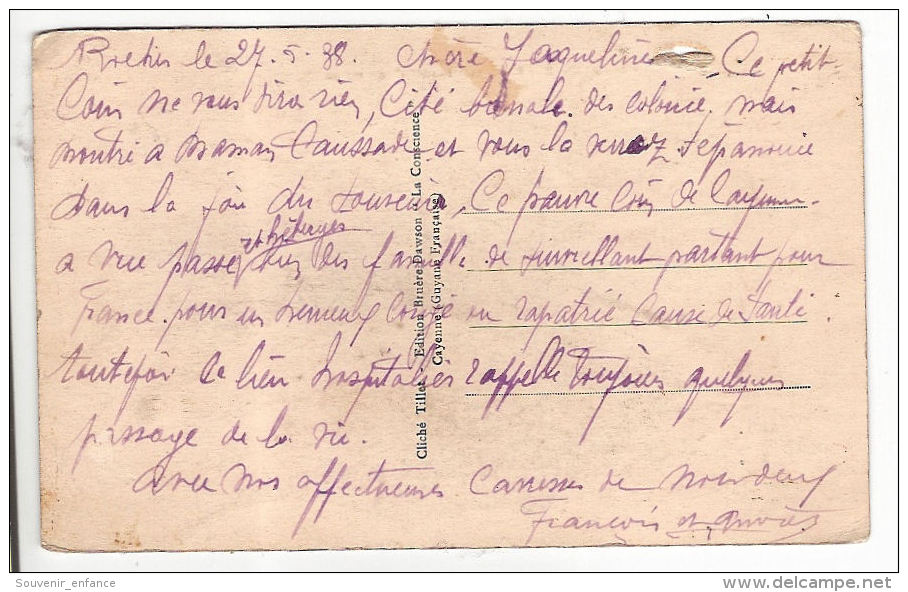 le 27.5.38. Chère Jaqueline Ce petit
Coin ne vous dira rien, Cité des colonie, mais
montré a Maman Caussade et vous la
dans la joie du souvenir, Ce pauvre Coin de Cayenne
et héberger
a vue passer des famille de partant pour
France. pour un ou rapatrié Cause de Santé.
toutefoi ce lieu hospitalier rappelle toujours quelques
passage de la vie.
avec nos affectueuses Caresses de nous deux
François et
Cliché Tillet - Edition Bruère-Dawson "La Conscience"
Cayenne (Guyane Française)
Souvenir_enfance
www.delcampe.net